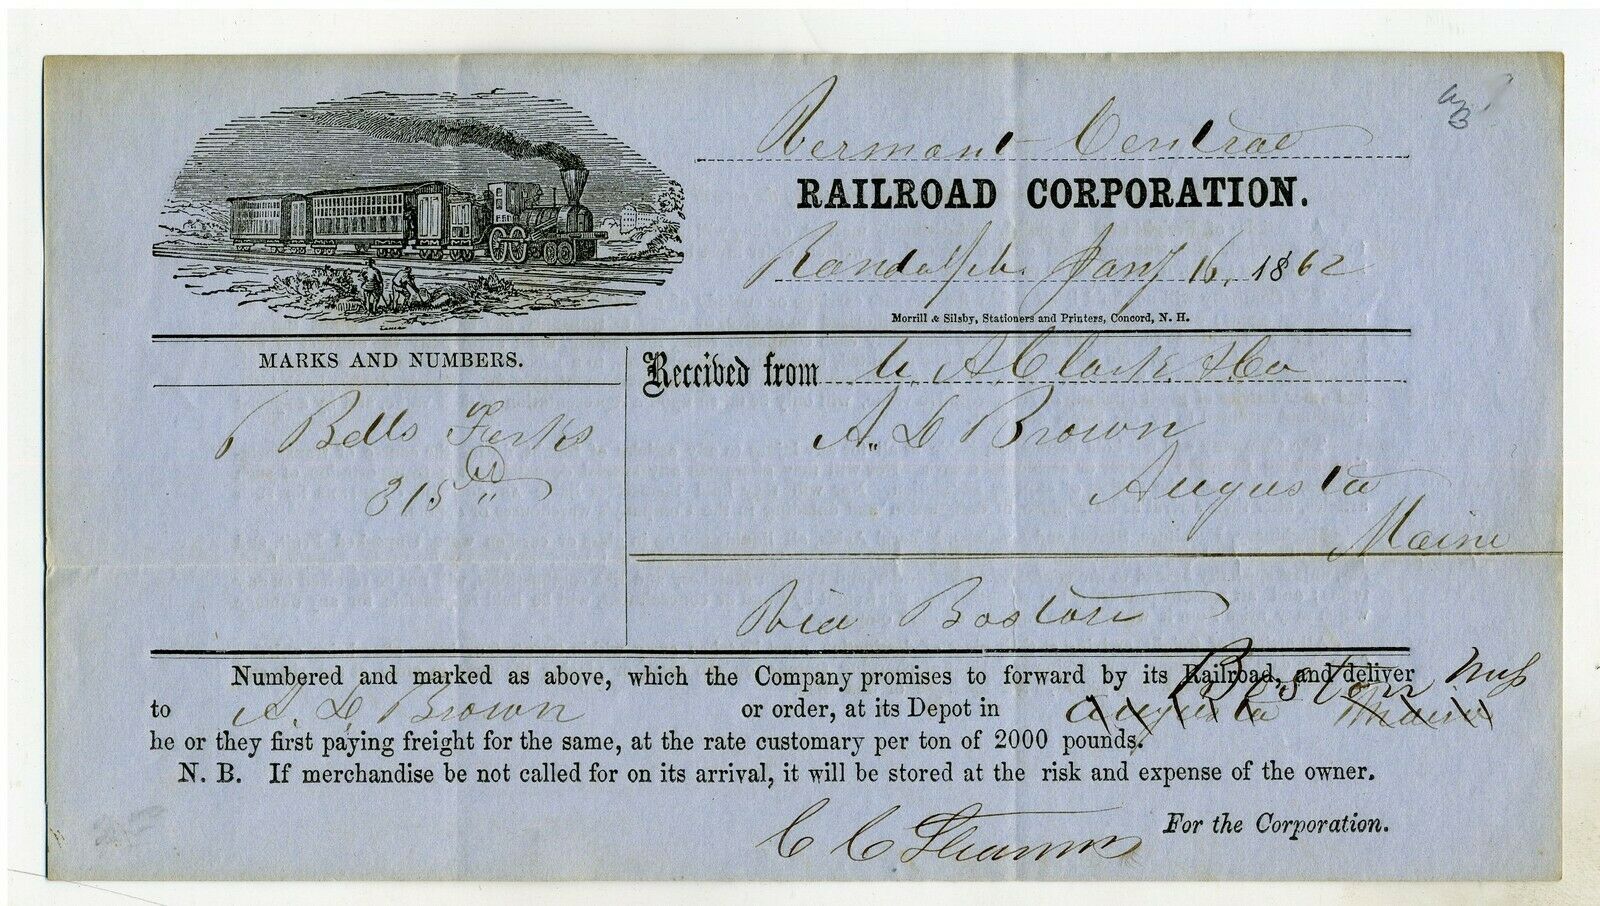 Vermont Central
RAILROAD CORPORATION.
Randolph Jany 16, 1862
Morrill & Silsby, Stationers and Printers, Concord, N. H.
MARKS AND NUMBERS.
6 Bdls Forks
315
Received from A Clark & Co
A. D Brown
Augusta
Maine
Via Boston
Numbered and marked as above, which the Company promises to forward by its Railroad, and deliver
Boston Mass
to A. D Brown or order, at its Depot in Augusta Maine
he or they first paying freight for the same, at the rate customary per ton of 2000 pounds.
N. B. If merchandise be not called for on its arrival, it will be stored at the risk and expense of the owner.
C C
For the Corporation.